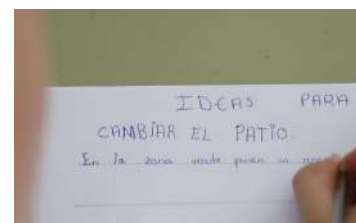 IDEAS PARA
CAMBIAR EL PATIO.
En la zona verde